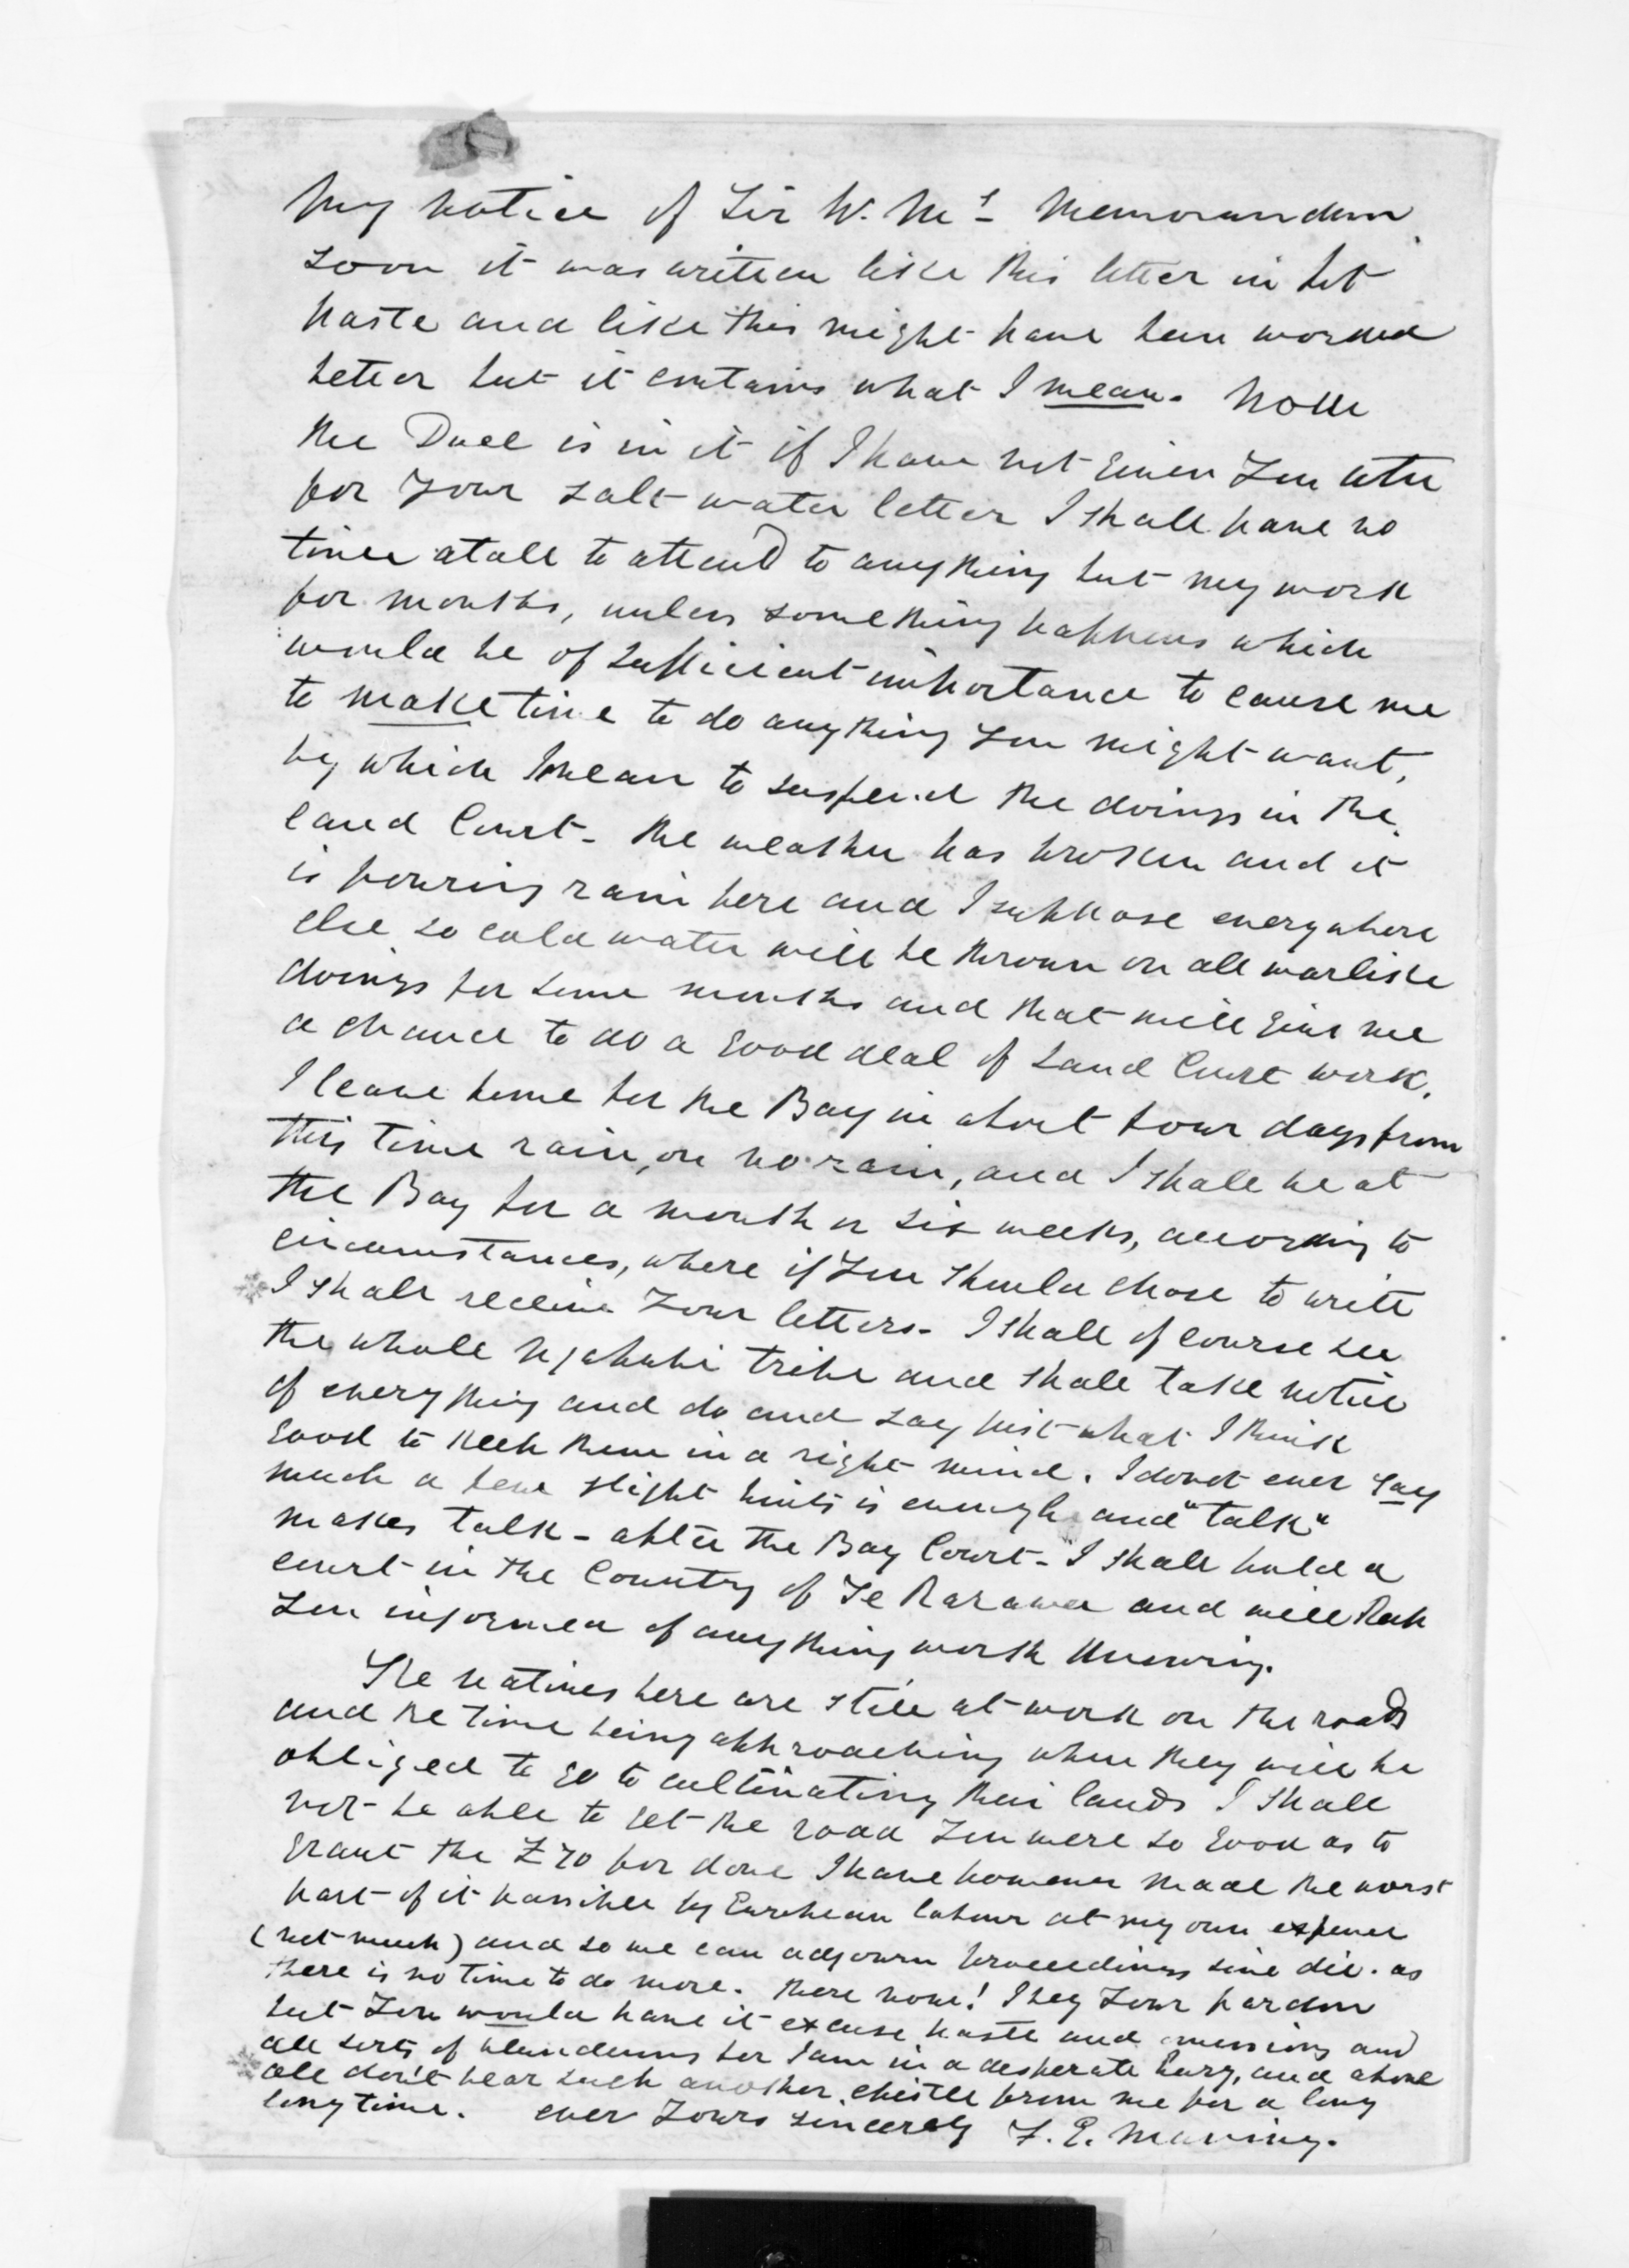 My notice of Sir W. Ms Memorandum
soon it was written like this letter in hot
haste and like this might have been worded
better but it contains what I mean. Now
the Duel is in it if I have not given you
for your salt water letter I shall have no
time atall to attend to anything but my work
for months, unless something happens which
would be of sufficient importance to cause me
to make time to do anything you might want,
by which I mean to suspend the doings in the
land Court - the weather has broken and it
is pouring rain here and I suppose everywhere
else so cold water will be thrown on all warlike
doings for some months and that will give me
a chance to do a good deal of Land Court work.
I leave home for the Bay in about four days from
this time rain, or no rain, and I shall be at
the Bay for a month or six weeks, according to
circumstances, where if you should chose to write
I shall receive your letters - I shall of course see
the whole Ngapuhi tribe and shall take notice
of everything and do and say just what I think
good to keep them in a right mind. I donot ever say
much a few slight hints is enough and "talk"
makes talk - after the Bay Court - I shall hold a
court in the Country of Te Rarawa and will keep
you informed of anything worth knowing.
The natives here are still at work on the roads
and the time being approaching when they will be
obliged to go to cultivating their lands I shall
not be able to get the road you were so good as to
grant the £70 for done I have however made the worst
part of it passible by European labour at my own expense
(not much) and so we can adjourn proceedings sine die. as
there is no time to do more. there now! I beg your pardon
but you would have it excuse haste and omissions and
all sorts of blunderings for I am in a desperate hury, and above
all don't fear such another epistle from me for a long
long time. ever yours sincerely F. E. Maning.